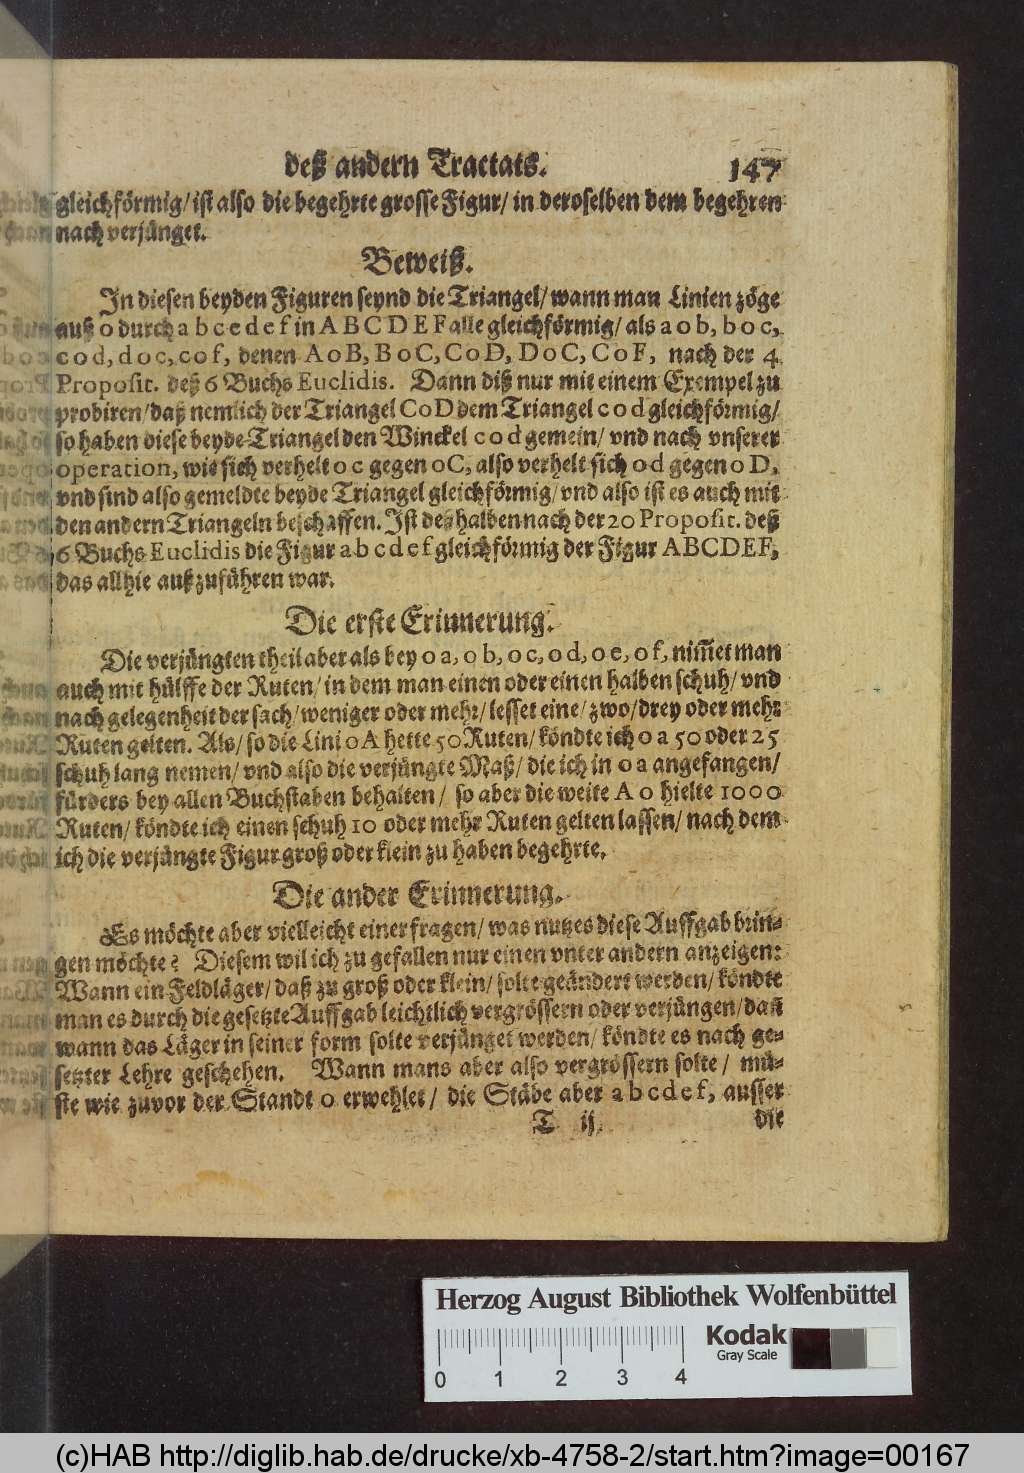 deß andern Tractats. 147
gleichförmig/ ist also die begehrte grosse Figur/ in deroselben dem begehren
nach verjünget.
Beweiß.
In diesen beyden Figuren seynd die Triangel/ wann man Linien zöge
auß o durch a b c e d e f in A B C D E F alle gleichförmig/ als a o b, b o c,
c o d, d o c, c o f, denen A o B, B o C, C o D, D o C, C o F, nach der 4
Proposit. deß 6 Buchs Euclidis. Dann diß nur mit einem Exempel zu
probiren/ daß nemlich der Triangel C o D dem Triangel c o d gleichförmig/
so haben diese beyde Triangel den Winckel c o d gemein/ vnd nach vnserer
operation, wie sich verhelt o c gegen o C, also verhelt sich o d gegen o D,
vnd sind also gemeldte beyde Triangel gleichförmig/ vnd also ist es auch mit
den andern Triangeln beschaffen. Ist deßhalben nach der 20 Proposit. deß
6 Buchs Euclidis die Figur a b c d e f gleichförmig der Figur ABCDEF,
das allhie außzuführen war.
Die erste Erinnerung.
Die verjüngten theil aber als bey o a, o b, o c, o d, o e, o f, nim̅et man
auch mit hülffe der Ruten/ in dem man einen oder einen halben schuh/ vnd
nach gelegenheit der sach/ weniger oder mehr/ lesset eine/ zwo/ drey oder mehr
Ruten gelten. Als/ so die Lini o A hette 50 Ruten/ köndte ich o a 50 oder 25
schuh lang nemen/ vnd also die verjüngte Maß/ die ich in o a angefangen/
fürders bey allen Buchstaben behalten/ so aber die weite A o hielte 1000
Ruten/ köndte ich einen schuh 10 oder mehr Ruten gelten lassen/ nach dem
ich die verjüngte Figur groß oder klein zu haben begehrte.
Die ander Erinnerung.
Es möchte aber vielleicht einer fragen/ was nutzes diese Auffgab brin-
gen möchte? Diesem wil ich zu gefallen nur einen vnter andern anzeigen:
Wann ein Feldläger/ daß zu groß oder klein/ solte geändert werden/ köndte
man es durch die gesetzte Auffgab leichtlich vergrössern oder verjüngen/ dañ
wann das Läger in seiner form solte verjünget werden/ köndte es nach ge-
setzter Lehre geschehen. Wann mans aber also vergrössern solte/ mü-
ste wie zuvor der Standt o erwehlet/ die Stäbe aber a b c d e f, ausser
T ij die
Herzog August Bibliothek Wolfenbüttel
Kodak
Gray Scale
0 1 2 3 4
(c)HAB http://diglib.hab.de/drucke/xb-4758-2/start.htm?image=00167